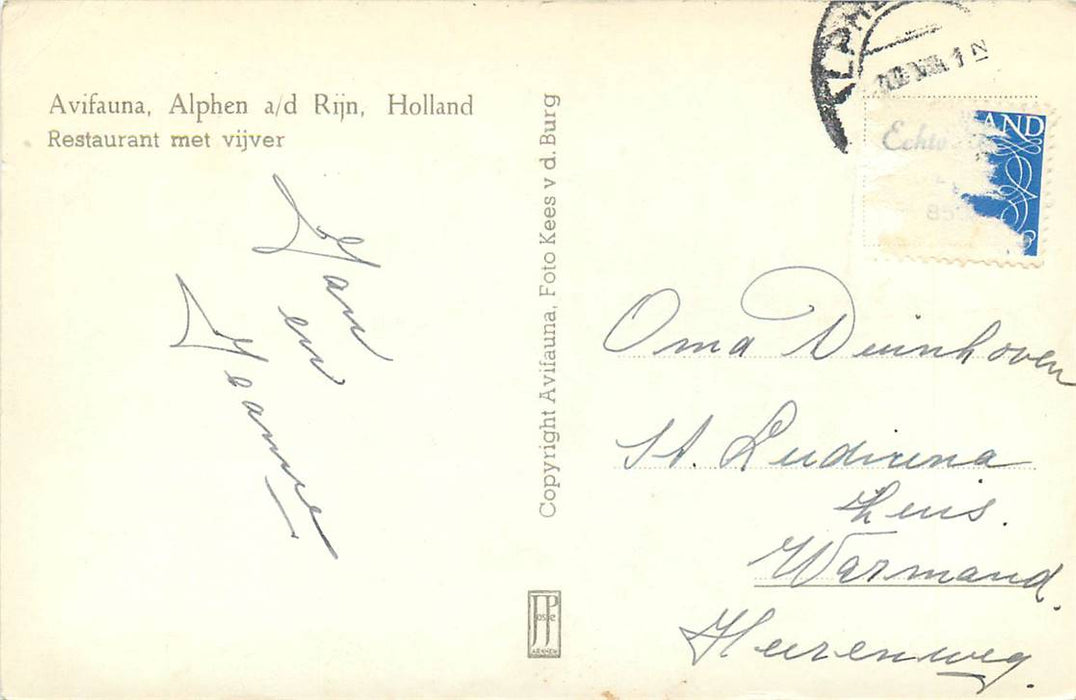 Avifauna, Alphen a/d Rijn, Holland
Restaurant met vijver
Jan
en
Jeanne
Copyright Avifauna, Foto Kees v d. Burg
JosPé
ARNHEM
ALPHE
VIII 1
Echt
LAND
Oma Duinhoven
St. Liduina
Huis.
Warmond.
Heerenweg.